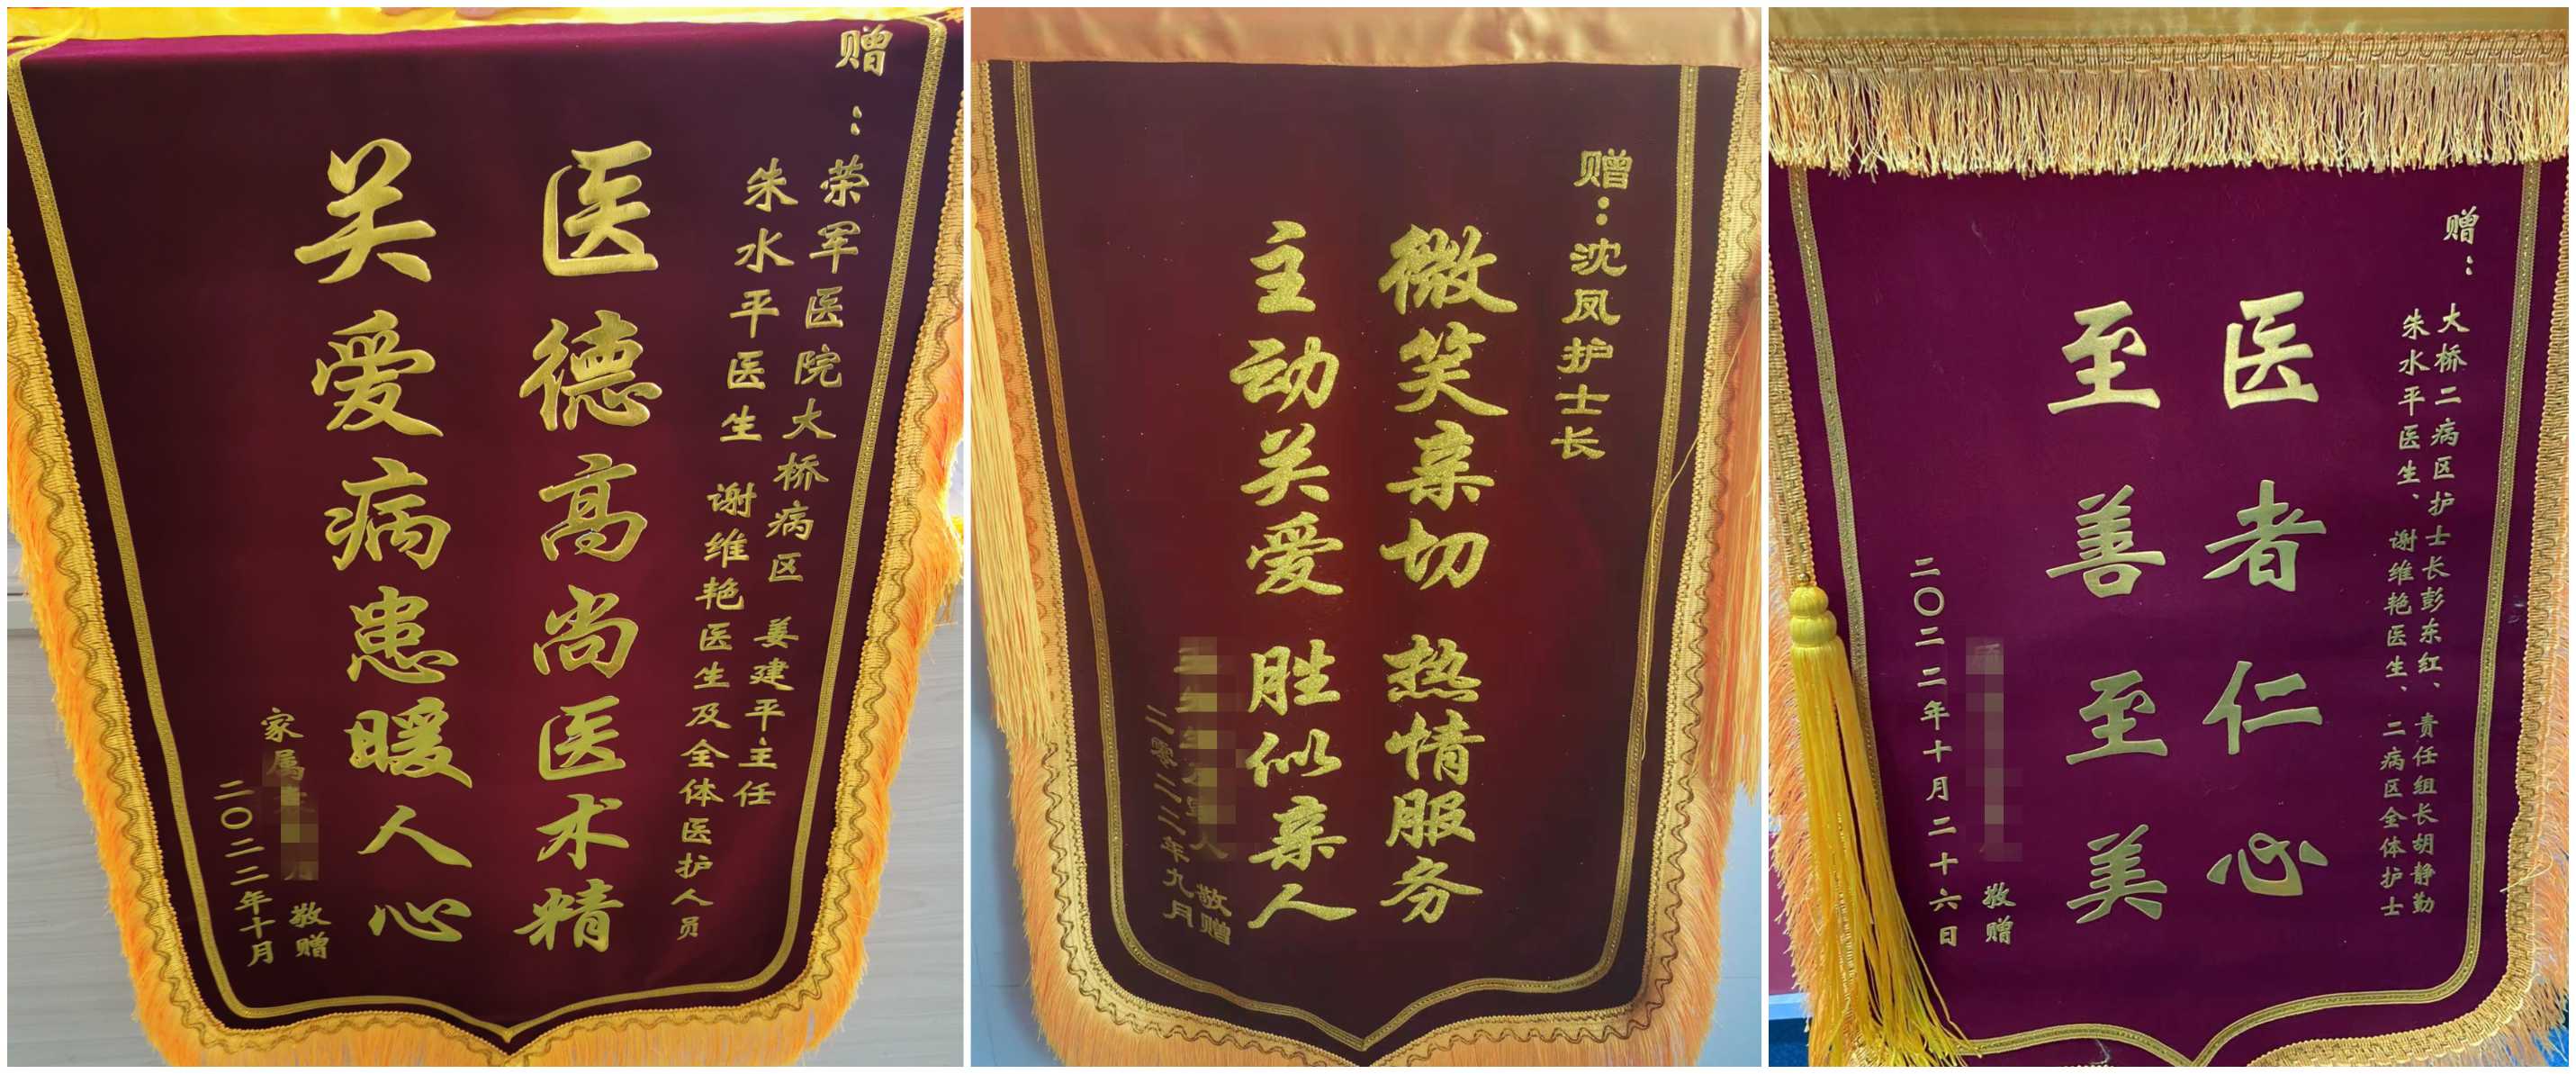 赠：
荣军医院大桥病区 姜建平主任
朱水平医生 谢维艳医生及全体医护人员
医德高尚医术精
关爱病患暖人心
家属
敬赠
二〇二二年十月
赠：沈凤护士长
微笑亲切 热情服务
主动关爱 胜似亲人
敬赠
二零二二年九月
赠：
大桥二病区护士长彭东红、责任组长胡静勤
朱水平医生、谢维艳医生、二病区全体护士
医者仁心
至善至美
敬赠
二〇二二年十月二十六日